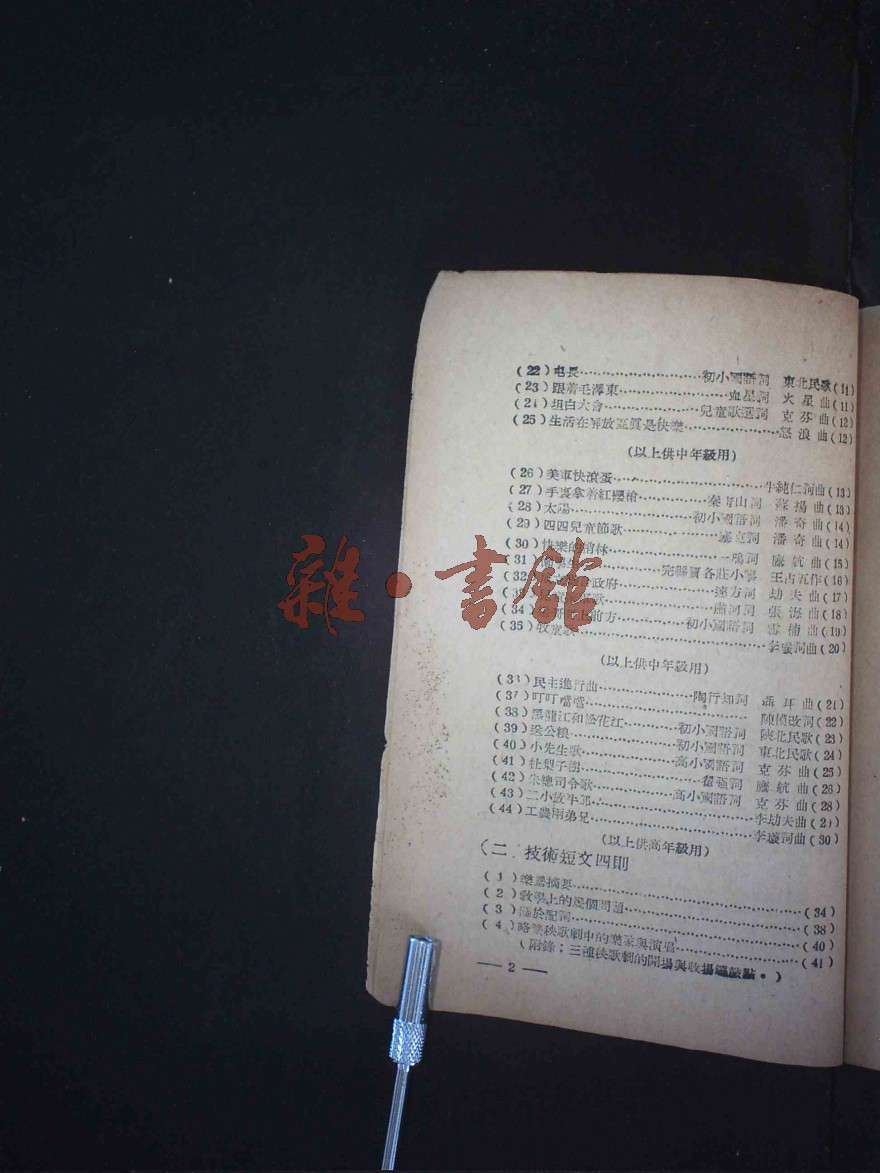 (22)屯長……初小國語詞 東北民歌(11)
(23)跟着毛澤東……血星詞 火星曲(11)
(24)坦白大會……兒童歌選詞 克芬曲(12)
(25)生活在解放區眞是快樂……怒浪曲(12)
(以上供中年級用)
(26)美軍快滾蛋……牛純仁詞曲(13)
(27)手裏拿着紅纓槍……秦 山詞 蘇揚曲(13)
(28)太陽……初小國語詞 潘奇曲(14)
(29)四四兒童節歌……塞克詞 潘奇曲(14)
(30)快樂的……一鳴詞 龐航曲(15)
(31)……完縣賈各莊小學 王占五作(16)
(32)政府……速方詞 劫夫曲(17)
歌……肅河詞 張海曲(18)
(34)前方……初小國語詞 雪楠曲(19)
(35)牧童歌……李巖詞曲(20)
(以上供中年級用)
(36)民主進行曲……陶行知詞 聶耳曲(21)
(37)叮叮噹噹……陳 改詞(22)
(38)黑龍江和松花江……初小國語詞 陝北民歌(23)
(39)送公糧……初小國語詞 東北民歌(24)
(40)小先生歌……高小國語詞 克芬曲(25)
(41)杜梨子樹……翟强詞 龐航曲(26)
(42)朱總司令歌……高小國語詞 克芬曲(28)
(43)二小放牛郎……李劫夫曲(29)
(44)工農兩弟兄……李巖詞曲(30)
(以上供高年級用)
(二.技術短文四則
(1)樂 摘要……(34)
(2)敎學上的幾個問題……(38)
(3)關於配詞……(40)
(4)略談秧歌劇中的樂隊與演唱……(41)
(附錄:三種秧歌劇的開場與收場鑼鼓點。)
— 2 —
雜·書館